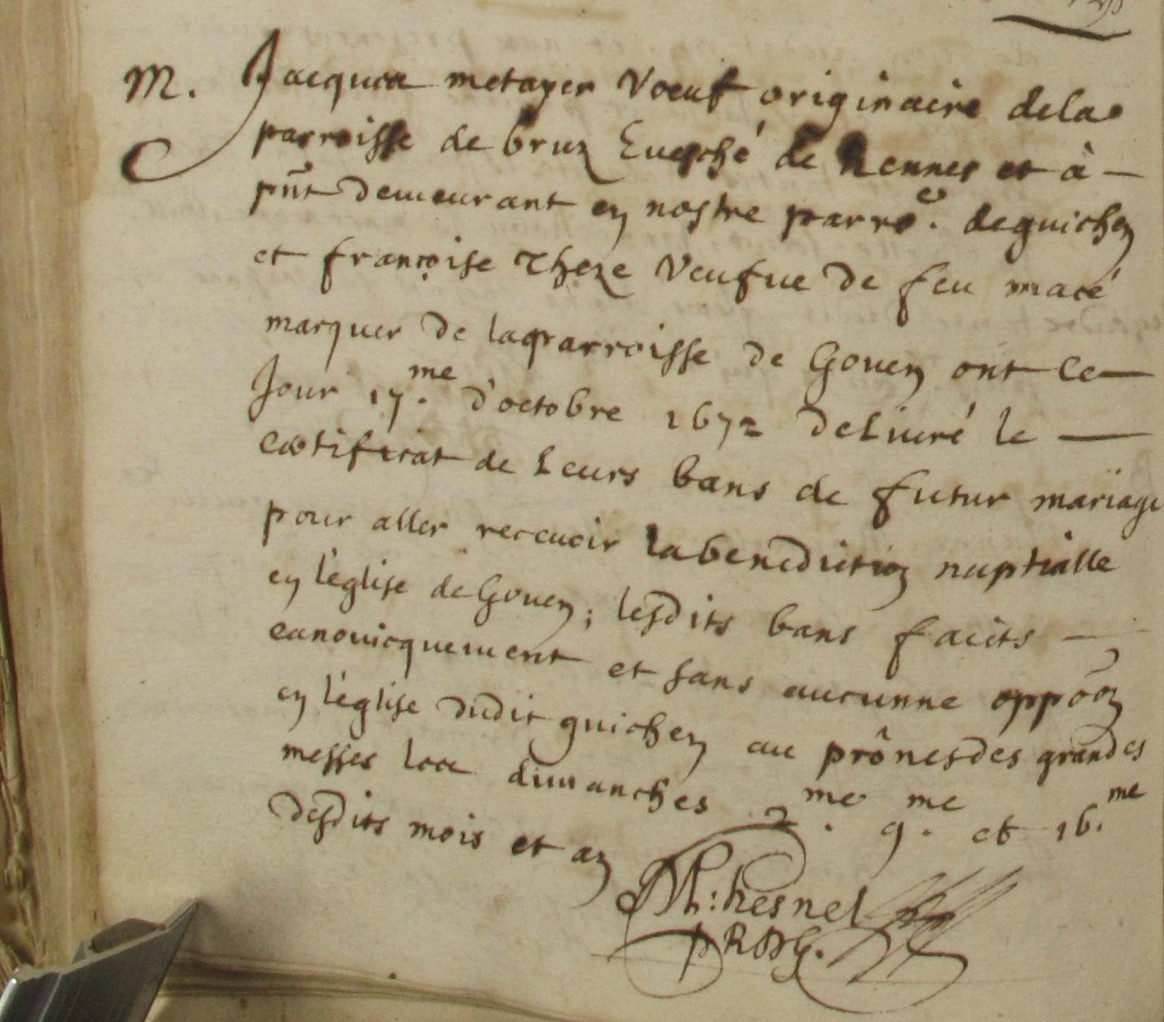 M. Jacques metayer Voeuf originaire dela
parroisse de bruz Euesché de Rennes et à -
pnt demeurant en nostre parroe. de guichen
et françoise Theze Veufue de feu macé
marquer de laparroisse de Gouen ont ce-
Jour 17.me d'octobre 1672 deliuré le -
certificat de Leurs bans de futur mariage
pour aller receuoir labenediction nuptialle
en l'eglise de Gouen; lesdits bans faicts -
canonicquement et sans aucunne oppoon
en l'eglise dudit guichen au prônes des grandes
messes les dimanches 2.me 9.me et 16.me
desdits mois et an
hesnel